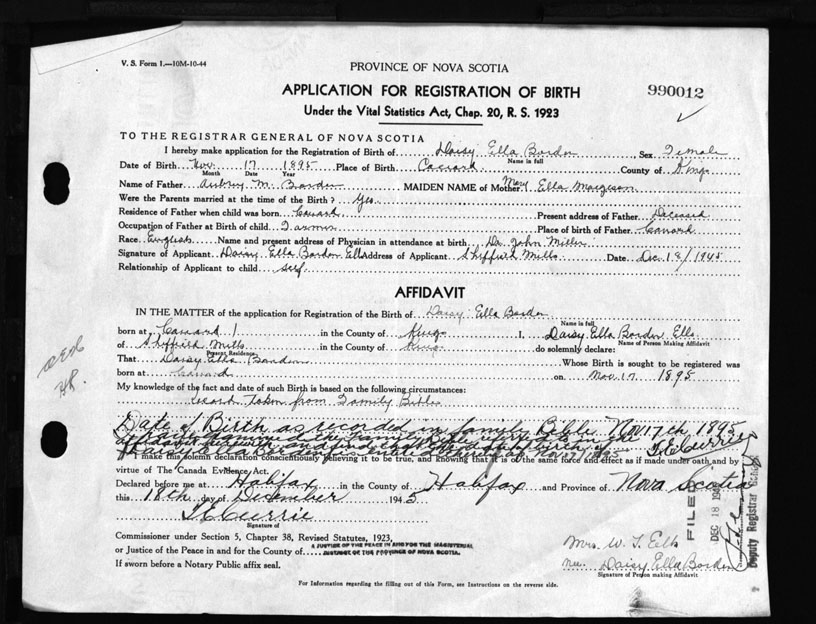 V. S. Form 1.—10M-10-44
PROVINCE OF NOVA SCOTIA
APPLICATION FOR REGISTRATION OF BIRTH
990012
Under the Vital Statistics Act, Chap. 20, R. S. 1923
TO THE REGISTRAR GENERAL OF NOVA SCOTIA
I hereby make application for the Registration of Birth of Daisy Ella Borden Sex Female
Name in full
Date of Birth Nov. 17 1895 Place of Birth Canard County of Kings
Month Date Year
Name of Father Aubrey M. Borden MAIDEN NAME of Mother Mary Ella Margeson
Were the Parents married at the time of Birth? Yes
Residence of Father when child was born Canard Present address of Father Deceased
Occupation of Father at Birth of child Farmer Place of birth of Father Canard
Race English Name and present address of Physician in attendance at birth Dr. John Miller
Signature of Applicant Daisy Ella Borden Ells Address of Applicant Sheffield Mills Date Dec. 18/1945
Relationship of Applicant to child self
AFFIDAVIT
IN THE MATTER of the application for Registration of the Birth of Daisy Ella Borden
Name in full
born at Canard in the County of Kings I, Daisy Ella Borden Ells
Name of Person Making Affidavit
of Sheffield Mills in the County of Kings do solemnly declare:
Present Residence
That Daisy Ella Borden Whose Birth is sought to be registered was
born at Canard on Nov. 17 1895
My knowledge of the fact and date of such Birth is based on the following circumstances:
record taken from Family Bible
Date of Birth as recorded in family Bible Nov 17th 1895
T.E. Currie
I make this solemn declaration conscientiously believing it to be true, and knowing that it is of the same force and effect as if made under oath and by
virtue of The Canada Evidence Act.
Declared before me at Halifax in the County of Halifax and Province of Nova Scotia
this 18th day of December 1945
T.E. Currie
Signature of
Commissioner under Section 5, Chapter 38, Revised Statutes, 1923,
or Justice of the Peace in and for the County of
A JUSTICE OF THE PEACE IN AND FOR THE MAGISTERIAL
DISTRICT OF THE PROVINCE OF NOVA SCOTIA.
If sworn before a Notary Public affix seal.
FILED
DEC 18 194
Deputy Registrar General
Mrs. W. T. Ells
nee. Daisy Ella Borden
Signature of Person making Affidavit
For Information regarding the filling out of this Form, see Instructions on the reverse side.